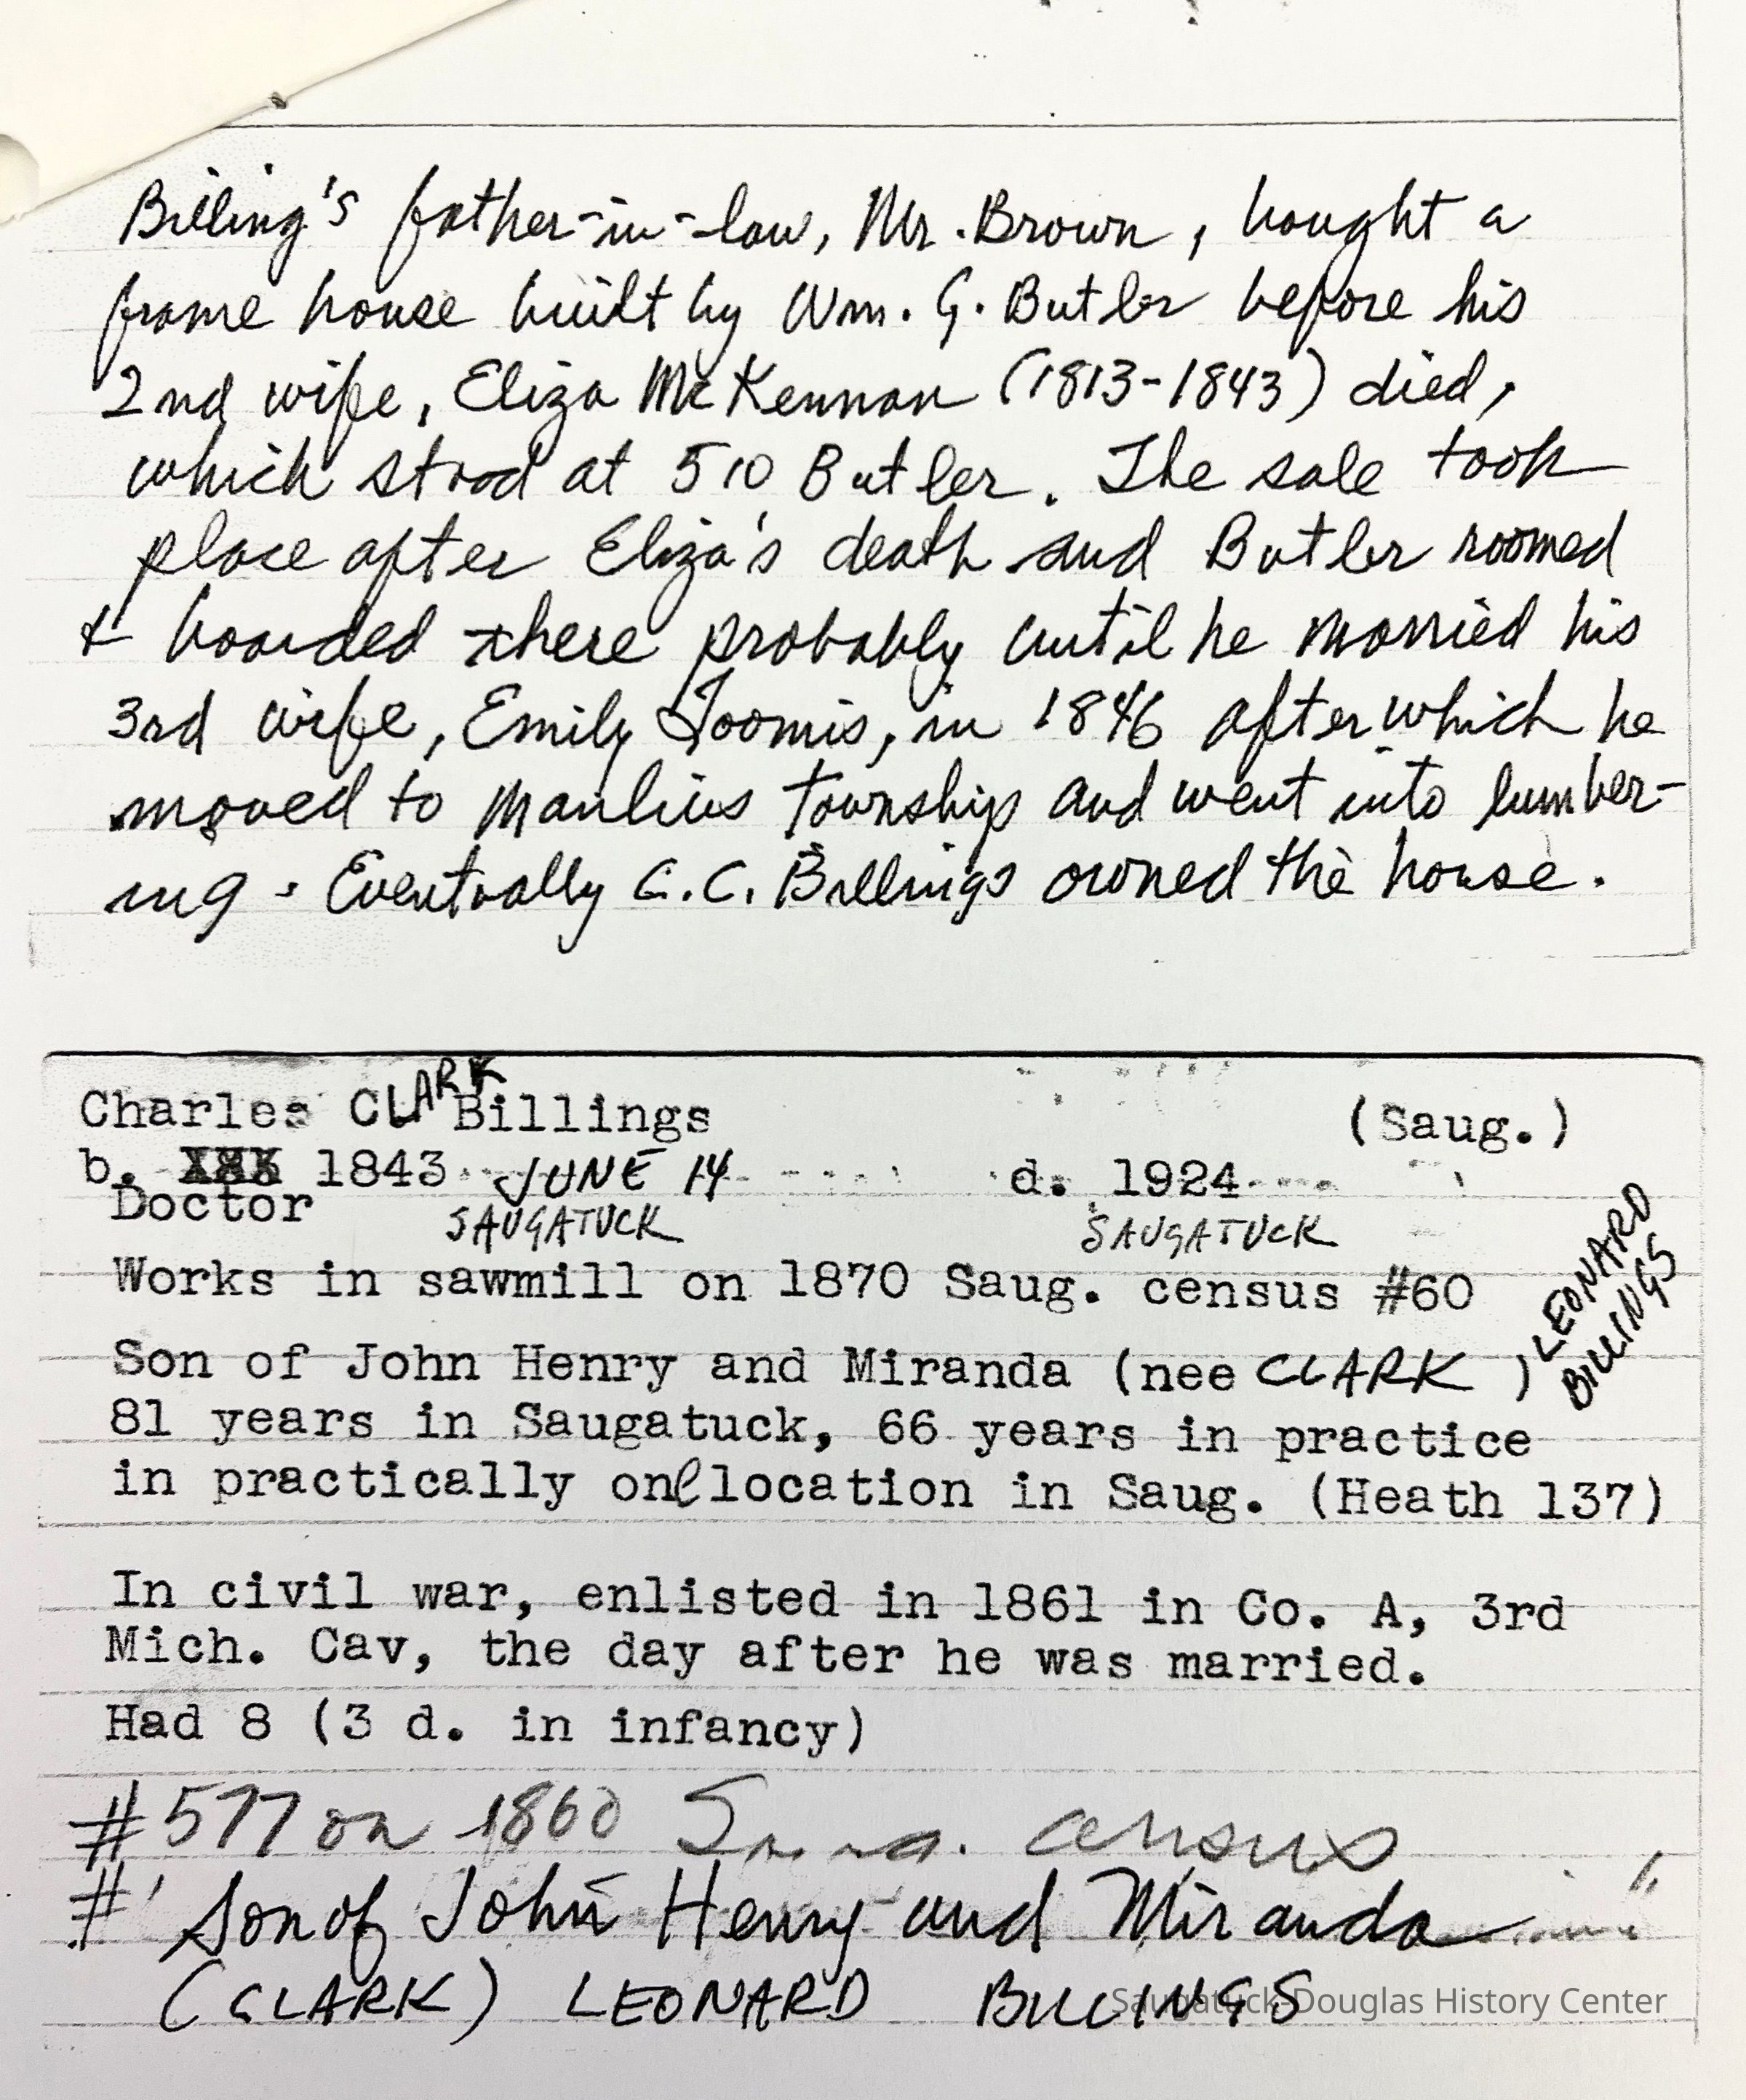 Billing's father-in-law, Mr. Brown, bought a
frame house built by Wm. G. Butler before his
2nd wife, Eliza McKennan (1813-1843) died,
which stood at 510 Butler. The sale took
place after Eliza's death and Butler roomed
& boarded there probably until he married his
3rd wife, Emily Loomis, in 1846 after which he
moved to Manlius township and went into lumber-
ing. Eventually C.C. Billings owned the house.
Charles CLARK Billings (Saug.)
b. 1843 JUNE 14 d. 1924
Doctor SAUGATUCK SAUGATUCK
Works in sawmill on 1870 Saug. census #60
Son of John Henry and Miranda (nee CLARK ) LEONARD
BILLINGS
81 years in Saugatuck, 66 years in practice
in practically one location in Saug. (Heath 137)
In civil war, enlisted in 1861 in Co. A, 3rd
Mich. Cav, the day after he was married.
Had 8 (3 d. in infancy)
#577 on 1860 census
# Son of John Henry and Miranda
(CLARK) LEONARD BILLINGS
Saugatuck-Douglas History Center